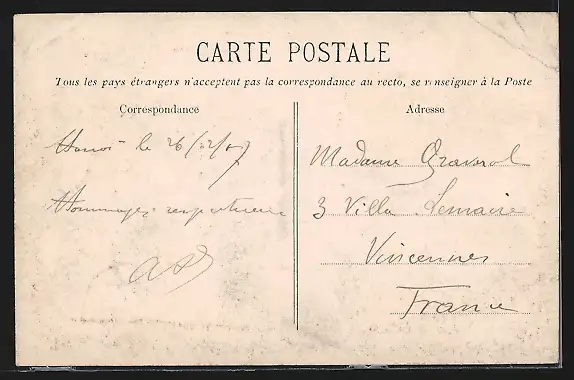 CARTE POSTALE
Tous les pays étrangers n'acceptent pas la correspondance au recto, se renseigner à la Poste
Correspondance
Hanoi le 26/12/07
Hommages respectueux
Adresse
Madame
3 Villa Lemaire
Vincennes
France